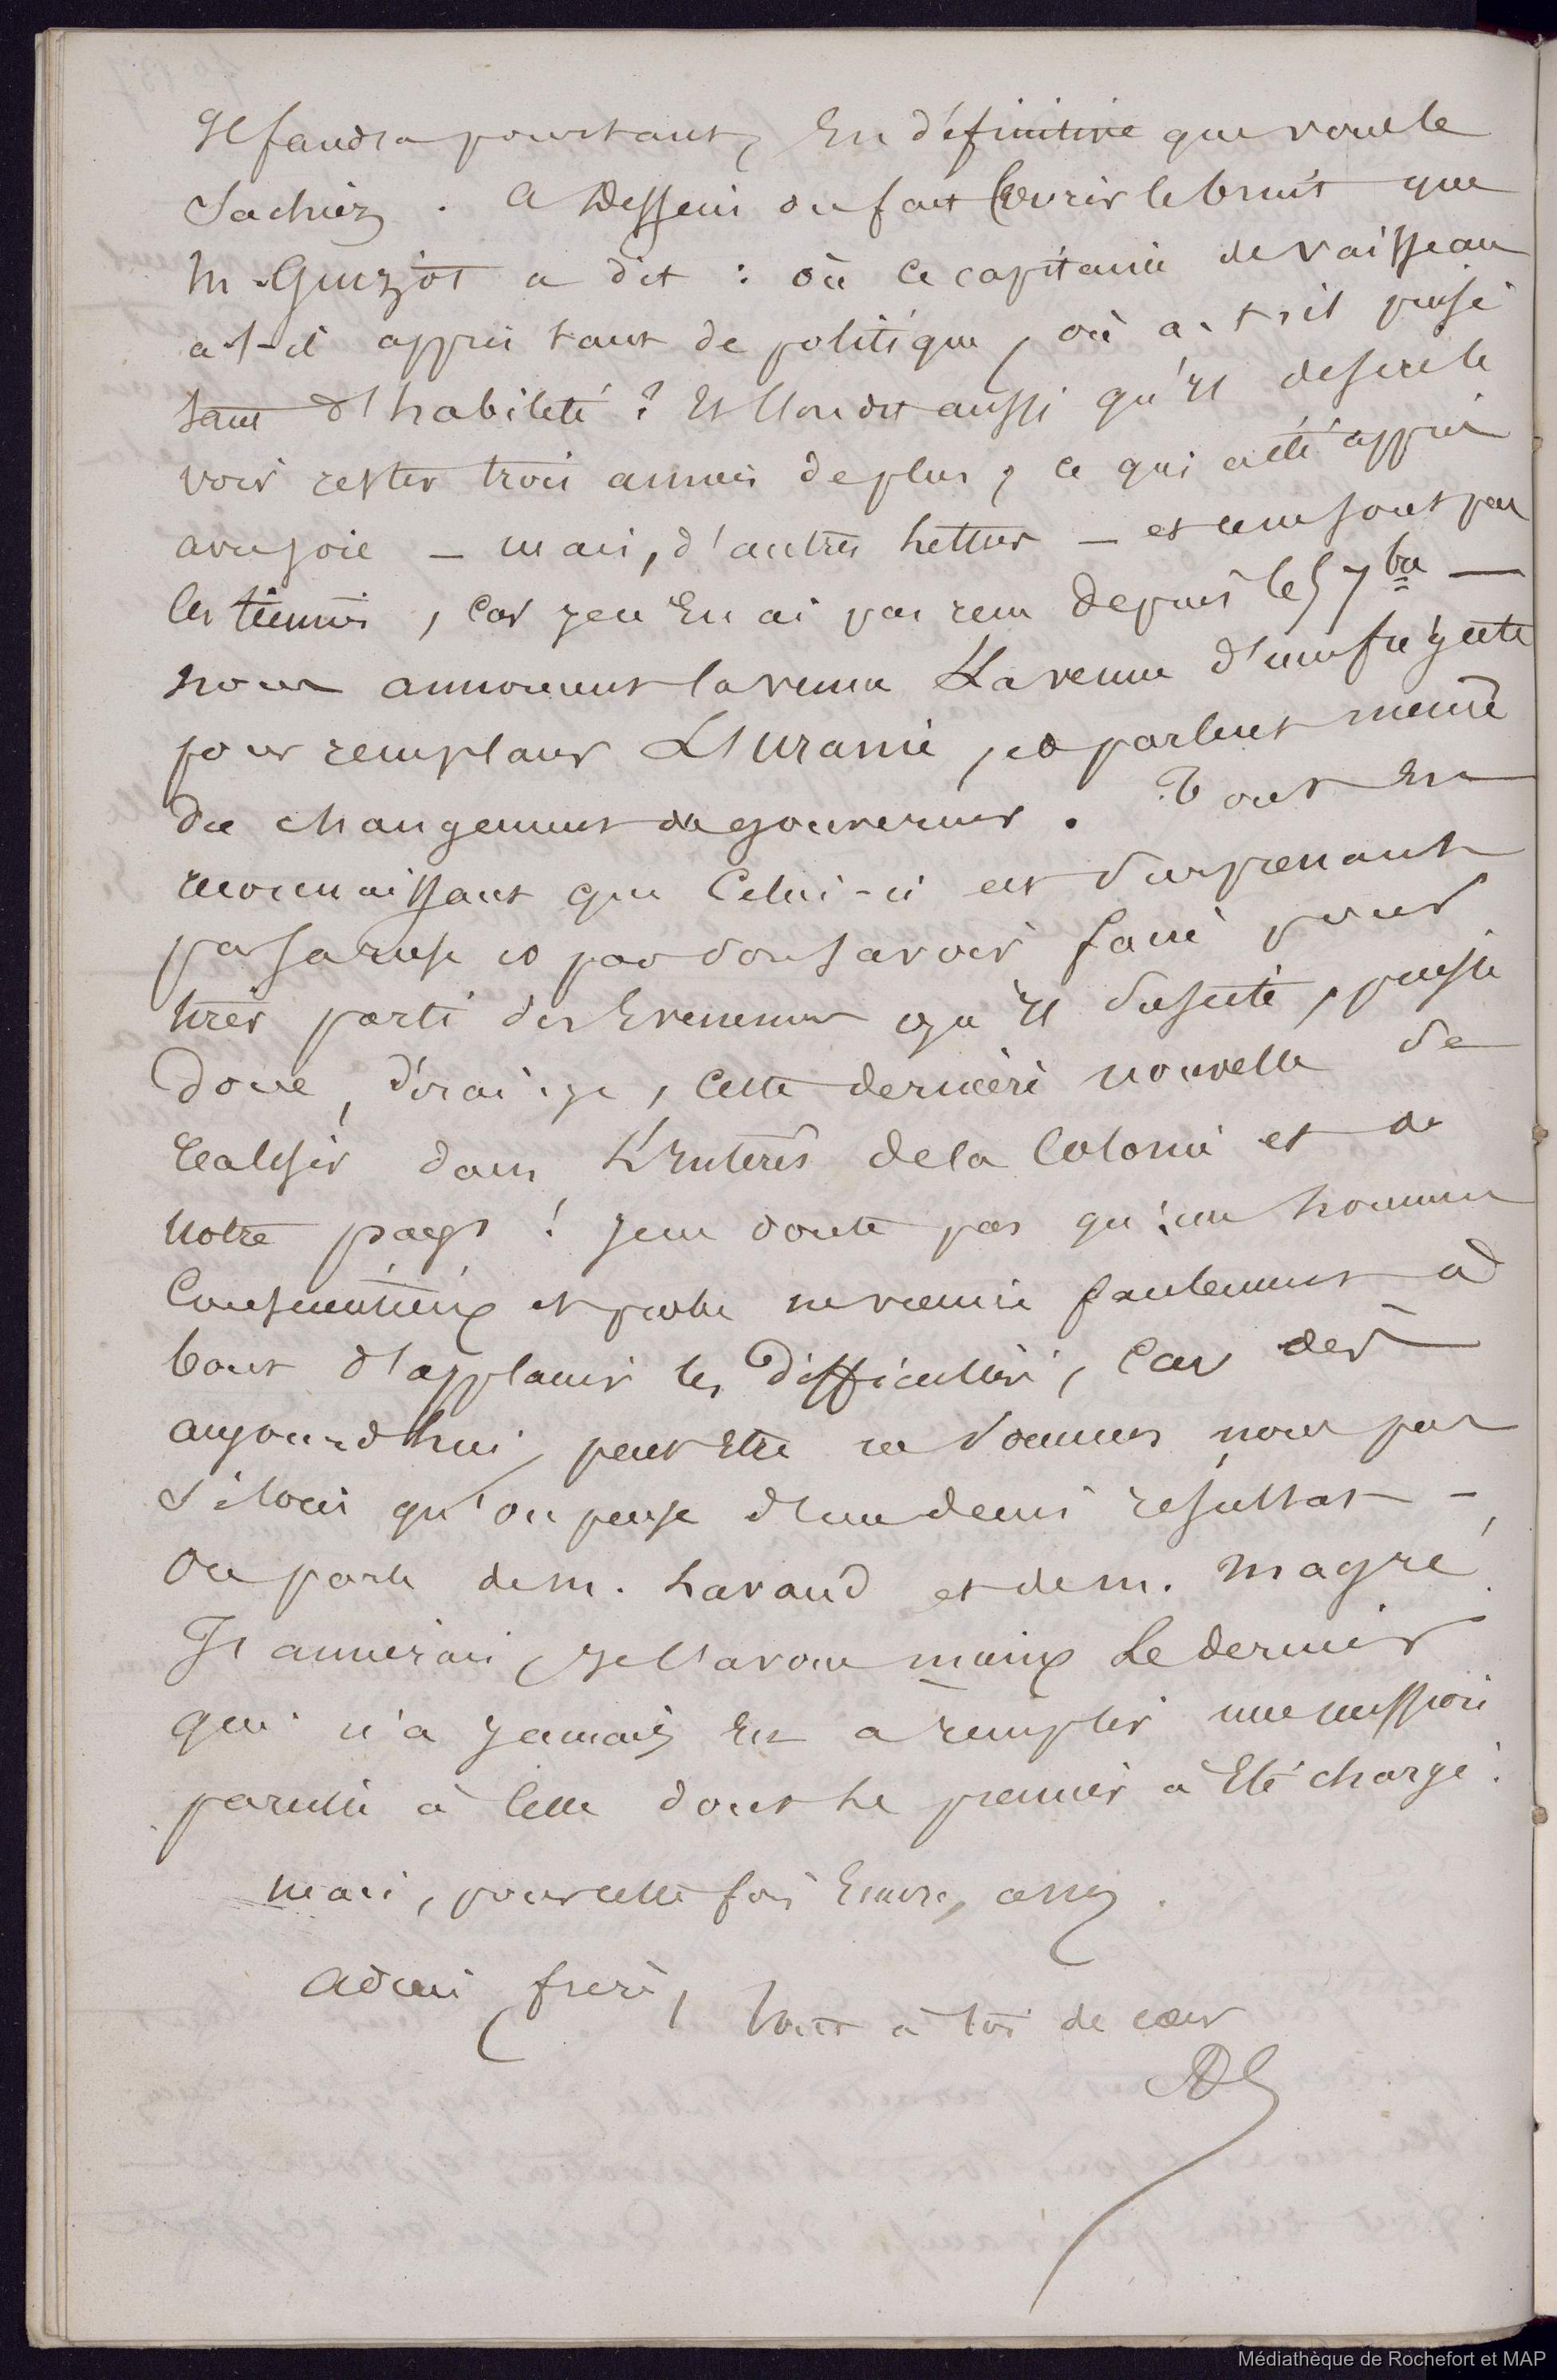 Il faudra pourtant, En définitive que vous le
Sachiez. A Dessein on fait Courir le bruit que
M. Guizot a dit : où ce capitaine de vaisseau
a-t-il appris tant de politique, où a-t-il puisé
tant d'habileté ? Et l'on dit aussi qu'il desire le
voir rester trois années de plus, ce qui a été appris
avec joie – mais, d'autres lettres – et ce ne sont pas
les tiennes, Car je n'En ai pas reçu depuis le 5 7bre –
nous annoncent la venue La venue d'une frégate
pour remplacer L'Uranie, et parlent même
du changement de gouverneur. Tout En
reconnaissant que Celui-ci est Surprenant
par sa ruse et par son savoir faire pour
tirer parti des Evenemens qu'il suscite, puisse
donc, dirai-je, Cette dernière nouvelle se
realiser dans L'Interêt de la Colonie et de
Notre pays ! Je ne doute pas qu'un homme
Consciencieux et probe ne vienne facilement à
bout d'applanir les Difficultés, Car dès
aujourd'hui, peut Etre ne sommes nous pas
si loin qu'on pense d'un demi résultat –,
On parle de M. Lavaud et de M. Magré.
J'aimerais, je l'avoue mieux Le dernier
qui n'a jamais Eu à remplir une mission
pareille à Celle dont Le premier a Eté chargé.
Mais, pour cette fois Encore, assez.
Adieu frère, tout à toi de cœur
Médiathèque de Rochefort et MAP